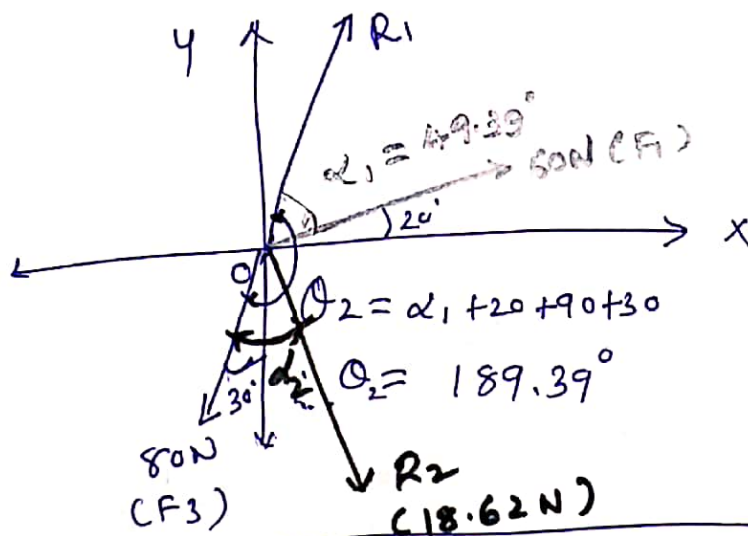 Y
R1
α1 = 49.39°
50N (F1)
20°
X
O
θ2 = α1 + 20 + 90 + 30
θ2 = 189.39°
30°
α2
80N
(F3)
R2
(18.62N)